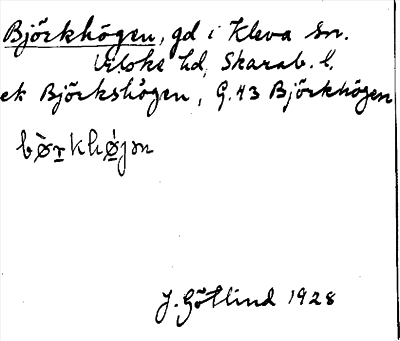 Björkhögen, gd i Kleva sn.
Vilske hd, Skarab. l.
ek Björkshögen, G.43 Björkhögen
bø̀rkhø̀jən
J. Götlind 1928